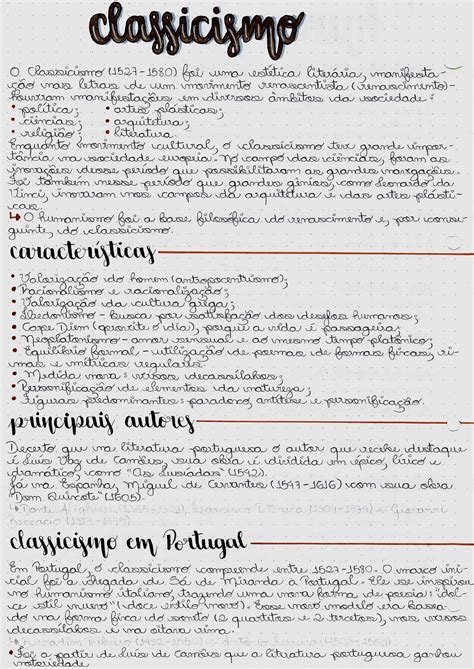 classicismo
O Classicismo (1527-1580) foi uma estética literária, manifesta-
ção nas letras de um movimento renascentista (renascimento)-
houveram manifestações em diversos âmbitos da sociedade:
• política; • artes plásticas;
• ciências; • arquitetura;
• religião; • literatura.
Enquanto movimento cultural, o classicismo tex grande impor-
tância na sociedade europeia. No campo das ciências, foram as
inovações desse período que possibilitaram as grandes navegações.
Foi também nesse período que grandes gênios, como Leonardo da
Vinci, inovaram nos campos da arquitetura e das artes plásti-
cas.
↳ O humanismo foi a base filosófica do renascimento e, por conse-
guinte, do classicismo.
características
• Valorização do homem (antropocentrismo);
• Racionalismo e racionalização;
• Valorização da cultura grega;
• Hedonismo - busca por satisfação dos desejos humanos;
• Carpe Diem (aproveite o dia), porque a vida é passageira;
• Neoplatonismo - amor sensual e ao mesmo tempo platônico;
• Equilíbrio formal - utilização de poemas de formas fixas, ri-
mas e métricas regulares.
• Medida nova: versos decassílabos;
• Personificação de elementos da natureza;
• Figuras predominantes: paradoxo, antítese e personificação.
principais autores
Decerto que na literatura portuguesa o autor que recebe destaque
é Luís Vaz de Camões, sua obra é dividida em épico, lírico e
dramático, como "Os Lusíadas" (1572).
Já na Espanha, Miguel de Cervantes (1547-1616) com sua obra
Dom Quixote" (1605).
classicismo em Portugal
Em Portugal, o classicismo compreende entre 1527-1580. O marco ini-
cial foi a chegada de Sá de Miranda à Portugal. Ele se inspirou
no humanismo italiano, trazendo uma nova forma de poesia: "dol-
ce stil nuovo" (doce estilo novo). Esse novo modelo era basea-
do na forma fixa do soneto (2 quartetos e 2 tercetos), nos versos
decassílabos e na oitava rima.
• Foi a partir de Luís de Camões que a literatura portuguesa ganhou
notoriedade